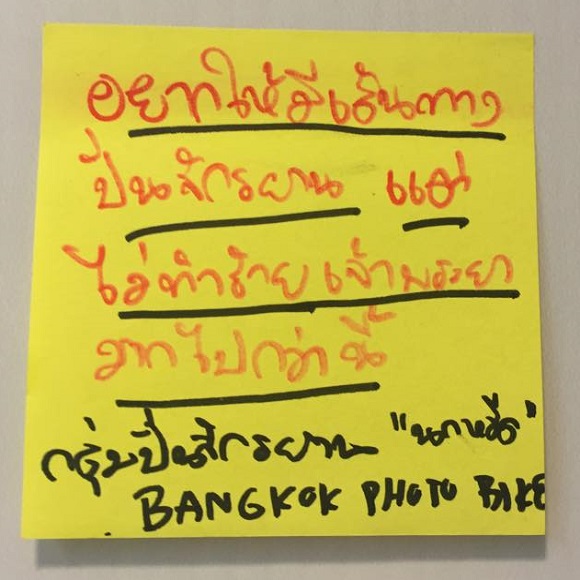 อยากให้มีเส้นทาง
ปั่นจักรยาน แต่
ไม่ทำร้ายเจ้าพระยา
มากไปกว่านี้
กลุ่มปั่นจักรยาน
BANGKOK PHOTO BIKE